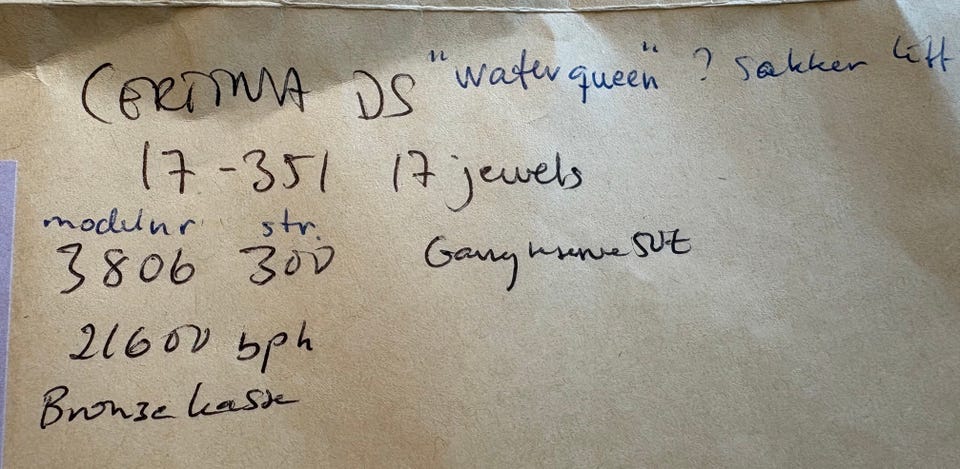 CERTINA DS "waterqueen" ? sakker litt
17-351 17 jewels
modelnr str.
3806 300 Gangreserve 50t
21600 bph
Bronze kasse